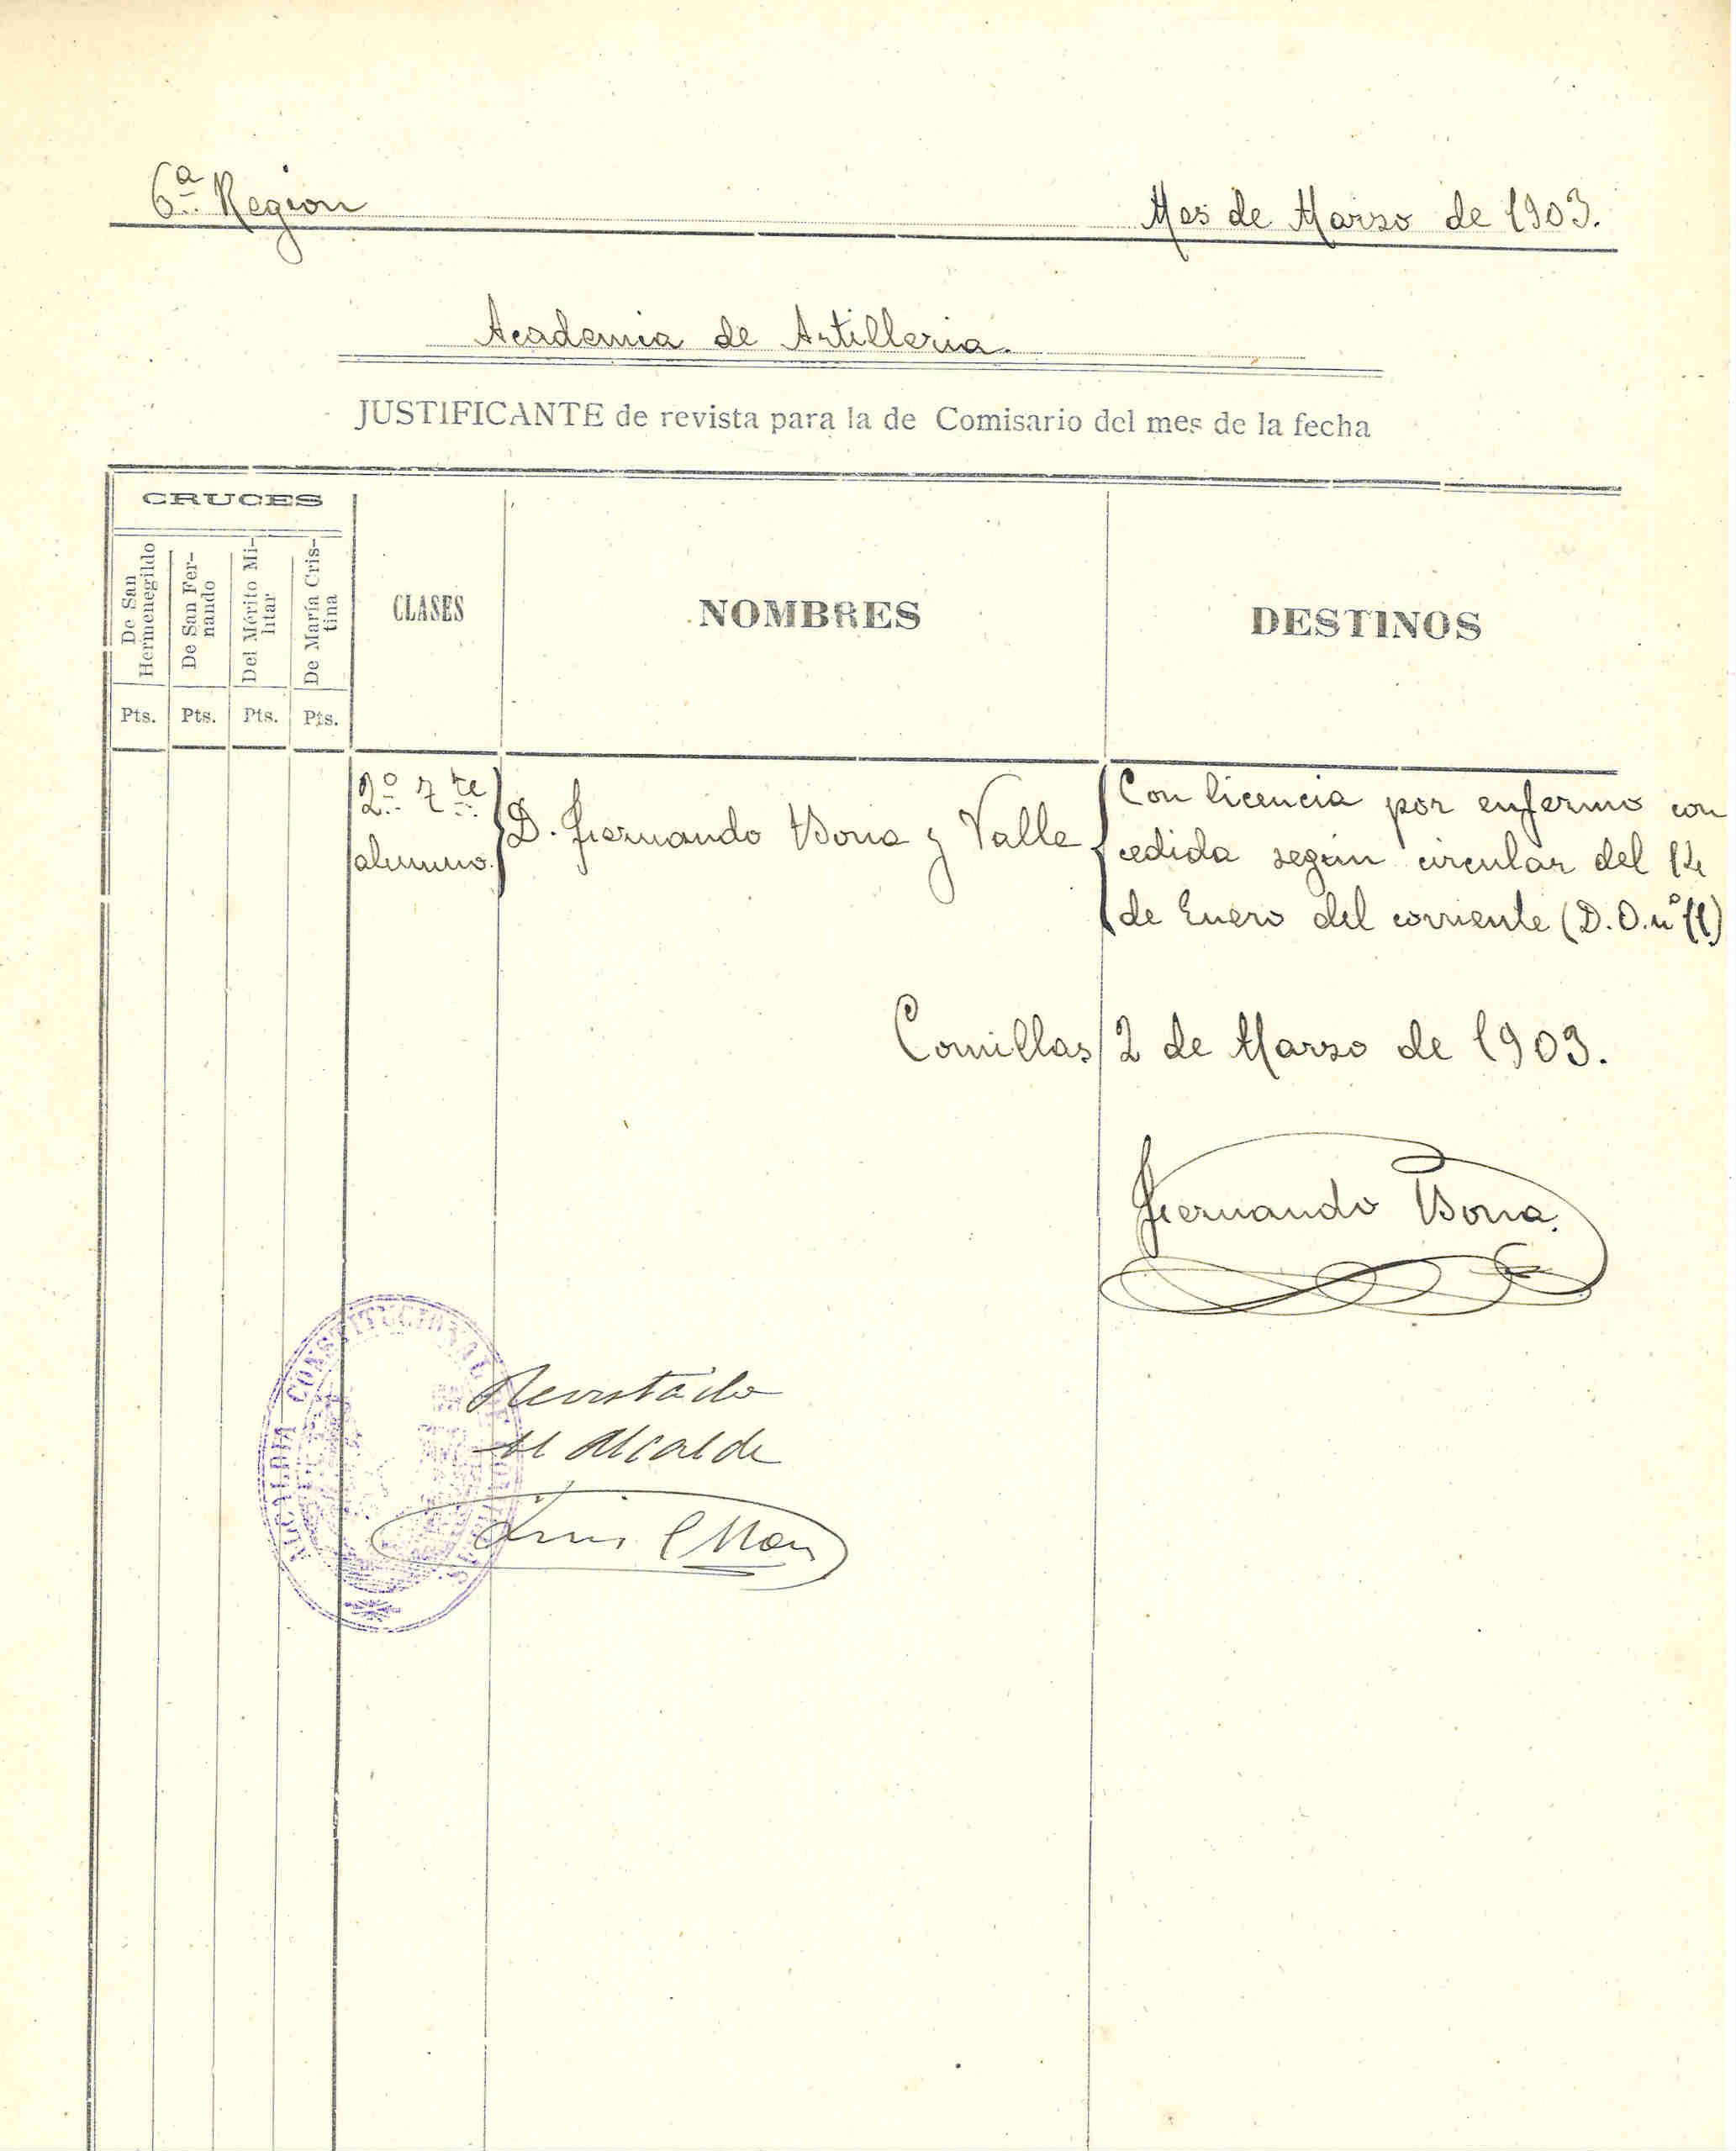 6ª Region
Mes de Marzo de 1903.
Academia de Artilleria.
JUSTIFICANTE de revista para la de Comisario del mes de la fecha
CRUCES
De San Hermenegildo
De San Fer-
nando
Del Mérito Mi-
litar
De María Cris-
tina
CLASES
NOMBRES
DESTINOS
Pts. Pts. Pts. Pts.
2º Tte
alumno.
D. Fernando Bona y Valle
Con licencia por enfermo con
cedida según circular del 14
de Enero del corriente (D.O. nº 11)
Comillas 2 de Marzo de 1903.
Fernando Bona.
ALCALDIA CONSTITUCIONAL DE COMILLAS
Revistado
El Alcalde
Luis